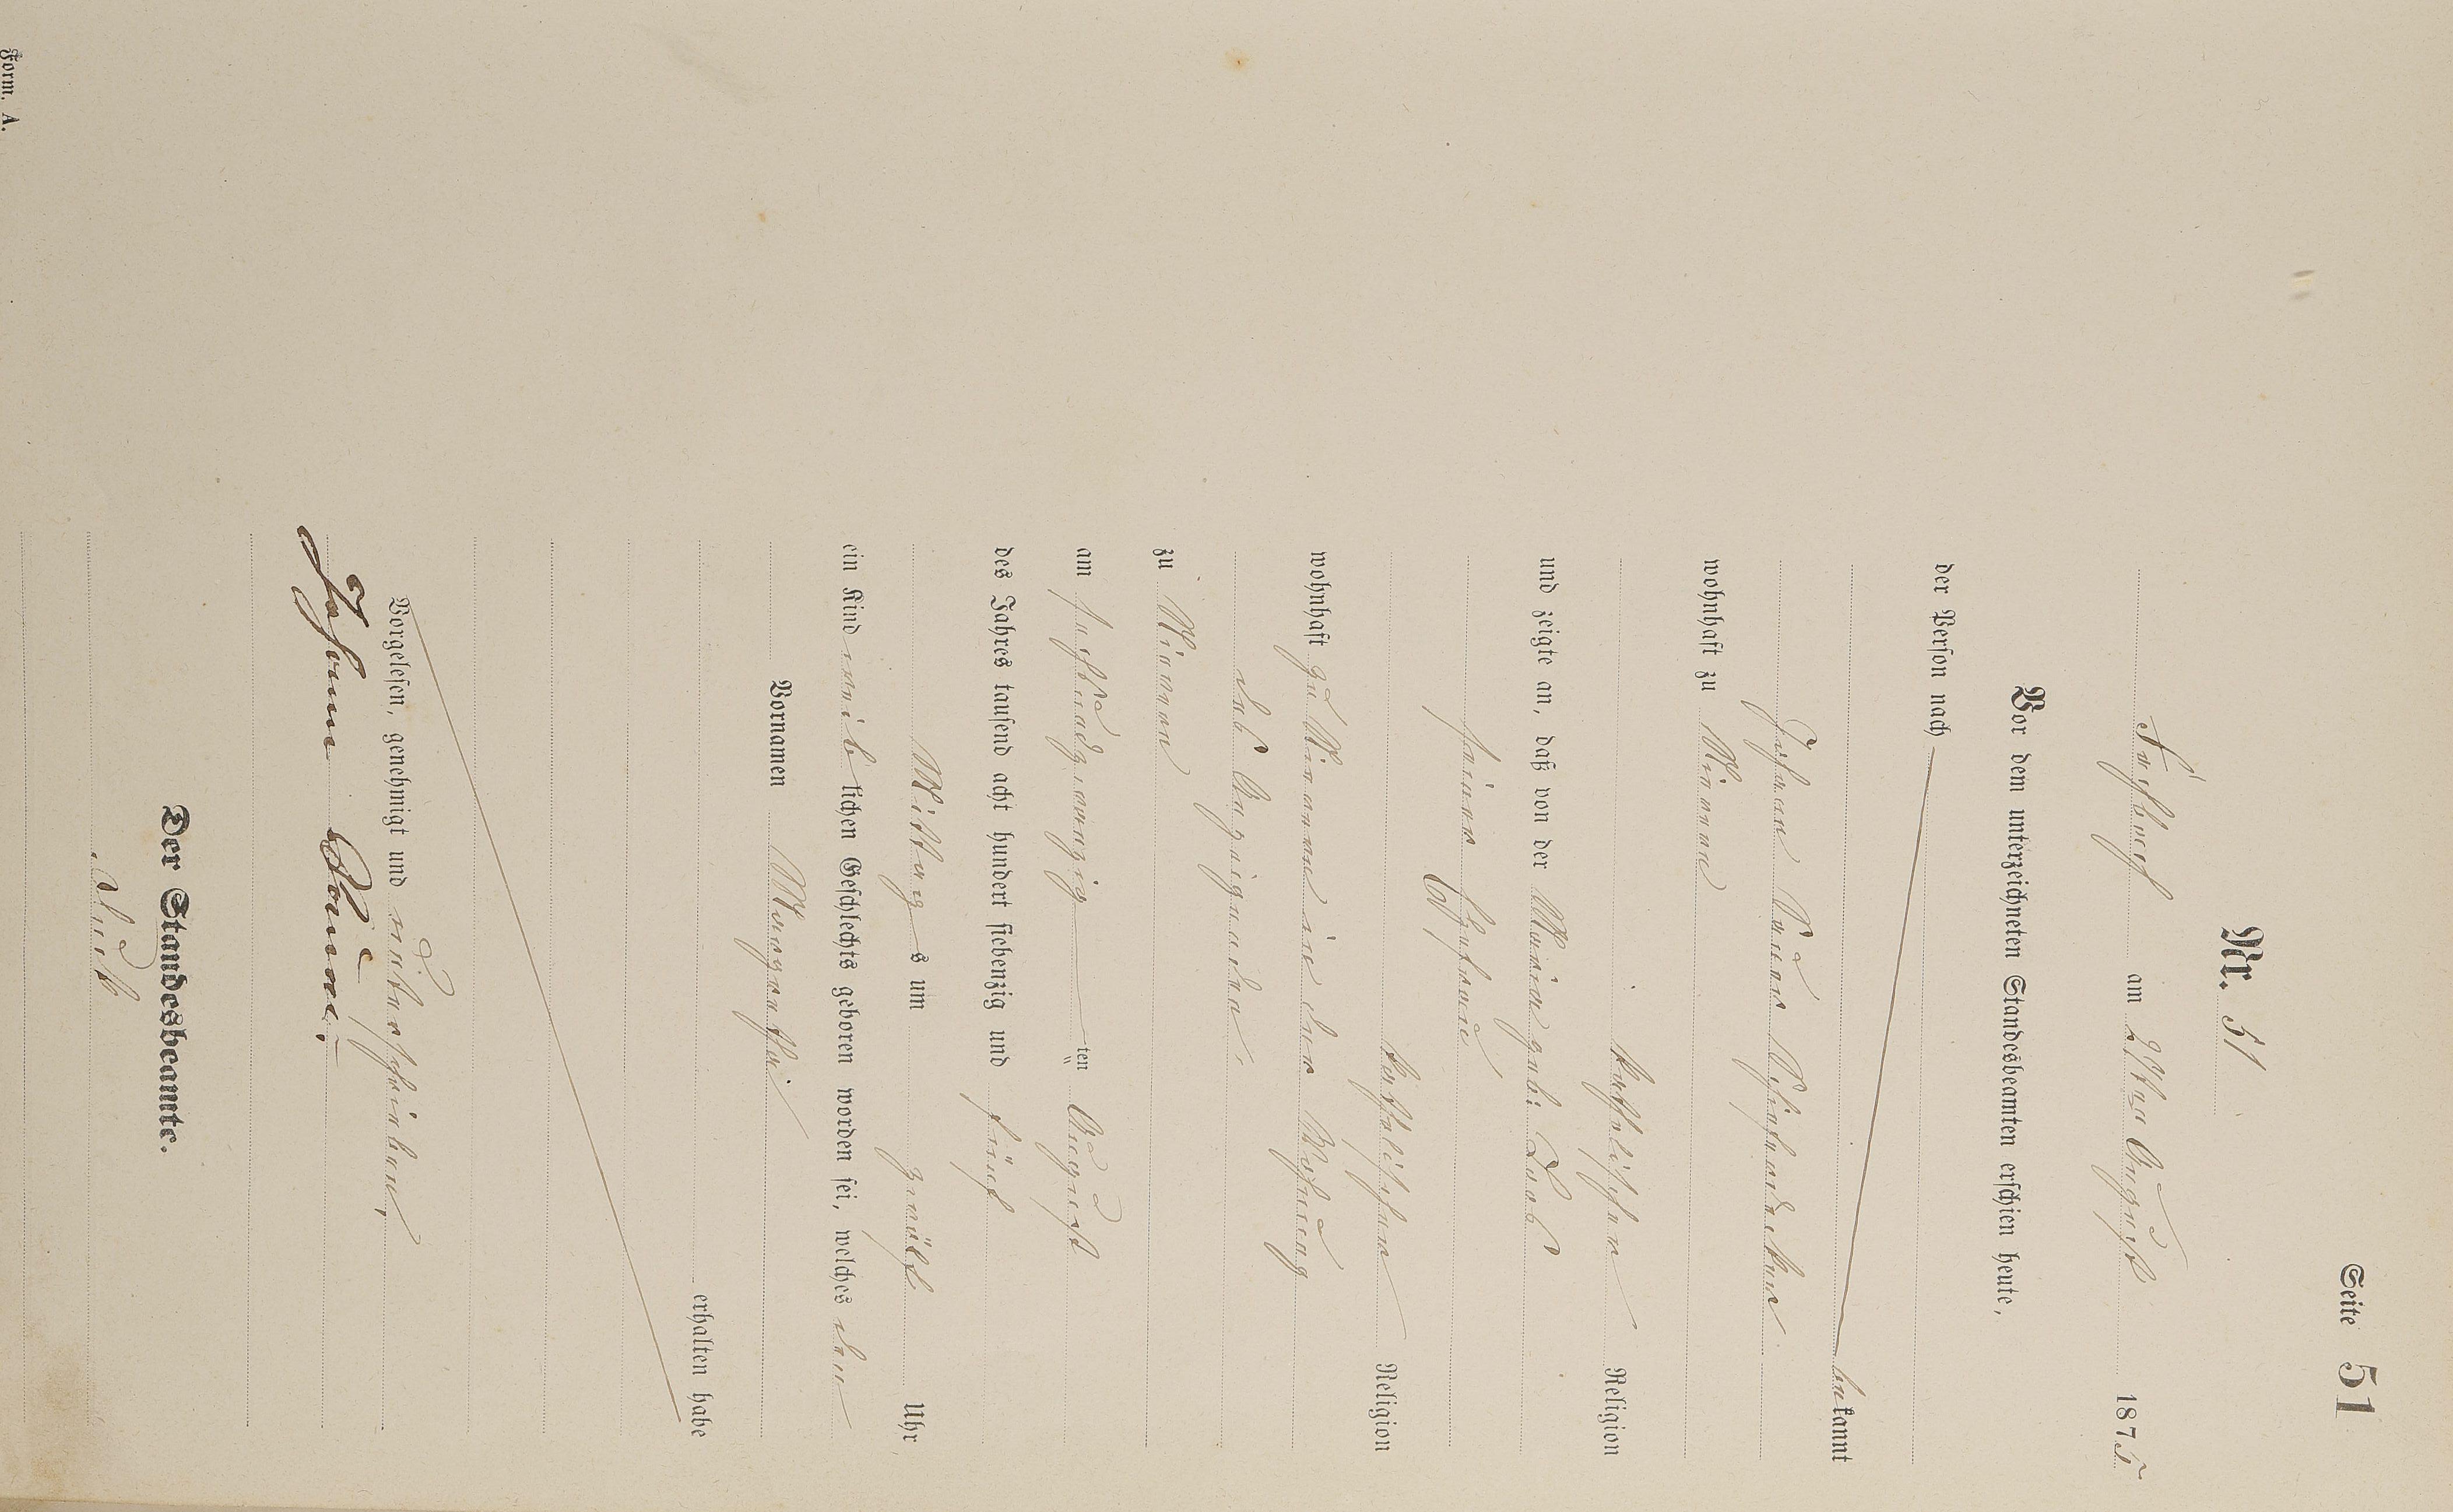 Seite 51
Nr. 51
am 27ten August 1875
Vor dem unterzeichneten Standesbeamten erschien heute,
der Person nach
bekannt
Johann
wohnhaft zu
katholischer Religion
und zeigte an, daß von der Maria geb:
seiner Ehefrau
katholischer Religion
wohnhaft zu in der Wohnung
des Anzeigenden
zu
am sechsundzwanzig ten August
des Jahres tausend acht hundert siebenzig und fünf
Mittags um zwölf Uhr
ein Kind weiblichen Geschlechts geboren worden sei, welches den
Vornamen Margaretha
erhalten habe
Vorgelesen, genehmigt und unterschrieben
Johann
Der Standesbeamte.
Form. A.